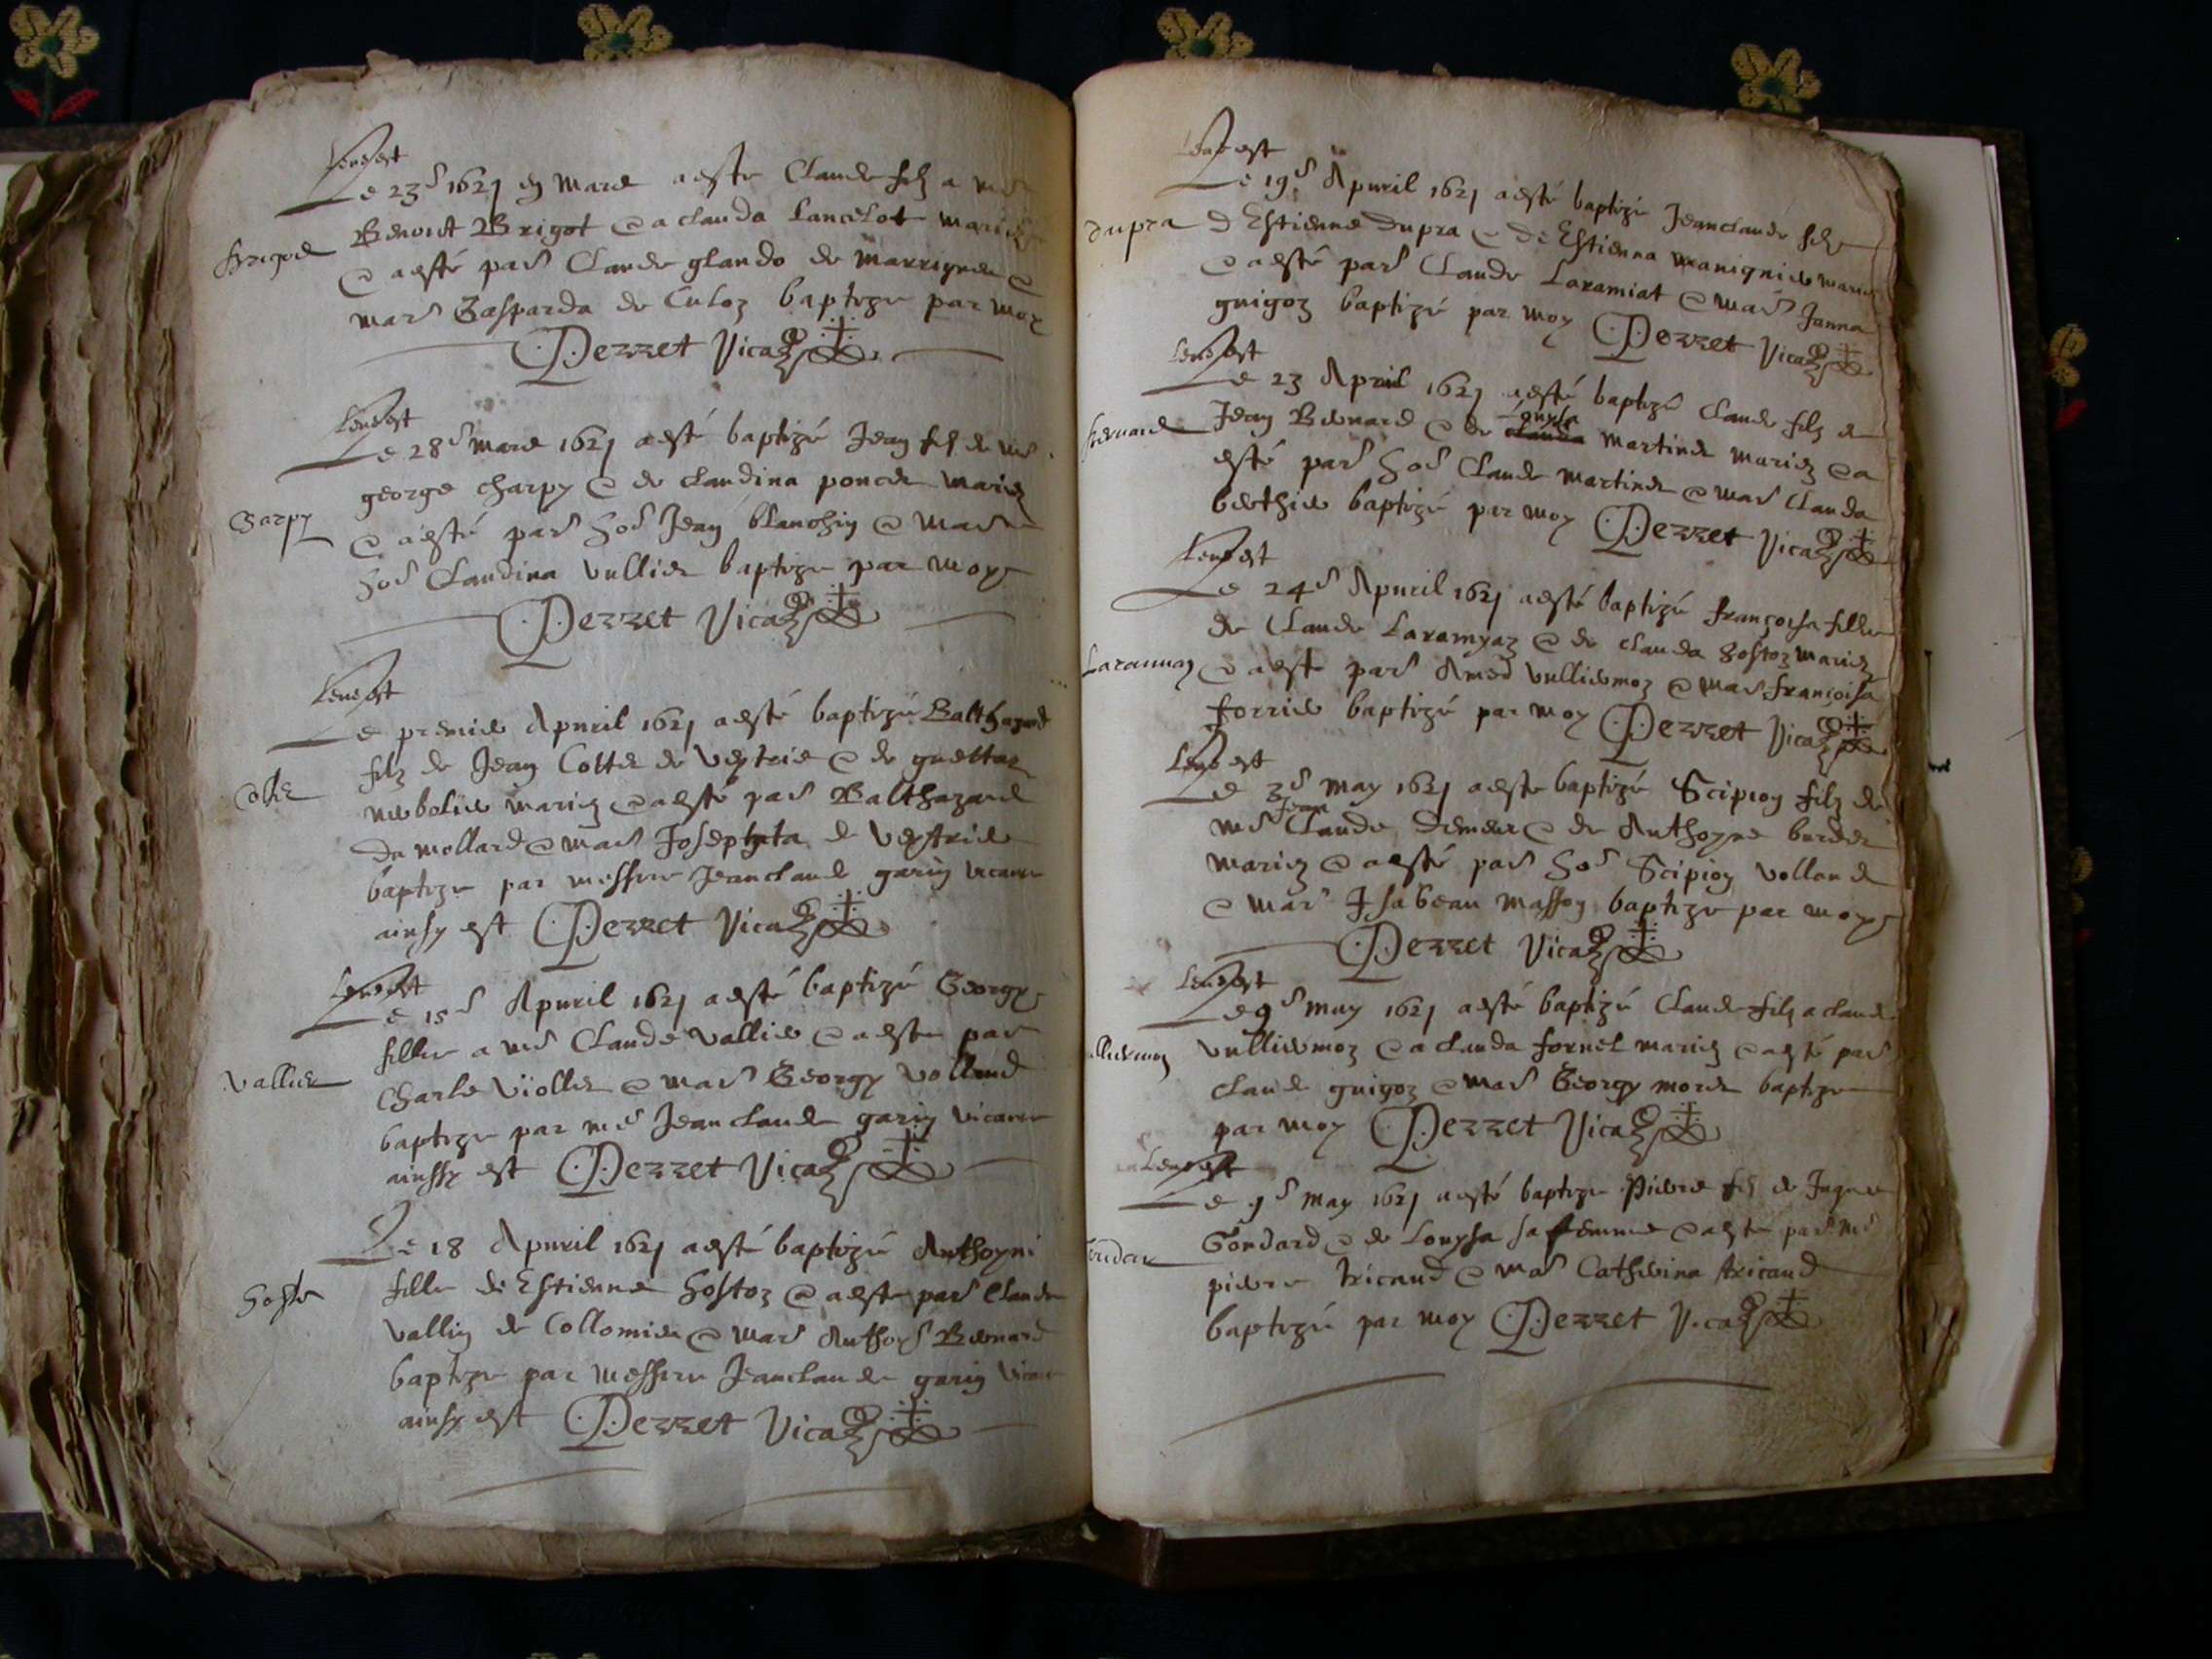 Levé est
Le 23e 1621 en Mars a esté Claude filz a me
Brigod
Benoit Brigot & a Clauda Lancelot mariez
& a esté par Claude glando de Marrignieu &
mar Gasparda de Culoz baptize par moy
Perret Vicaire
Levé est
Le 28e Mars 1621 a esté baptizé Jean filz de me
george charpy & de Claudina poncet mariez
Charpy
& a esté par ho Jean blanchin & mar
ho Claudina Vullier baptize par moy
Perret Vicaire
Levé est
Le premier Apuril 1621 a esté baptizé Balthazard
filz de Jean Cottier de Veytrie & de
Cottier
mariez & a esté par Balthazard
du mollard & mar Josephata de
baptize par messire Jeanclaude garin vicaire
ainsy est Perret Vicaire
Levé est
Le 15e Apuril 1621 a esté baptizé Georgy
fille a me Claude Vallier & a esté par
Vallier
Charle Viollet & mar Georgy Volland
baptize par me Jeanclaude garin vicaire
ainssy est Perret Vicaire
Le 18 Apuril 1621 a esté baptizé Anthoyni
Hoste
fille de Estienne hostoz & a esté par Claude
Vallin de Collomieu & mar Anthoy Bernard
baptize par messire Jeanclaude garin vicaire
ainsy est Perret Vicaire
Levé est
Le 19e Apuril 1621 a esté baptizé Jeanclaude filz
dupra
d Estienne dupra & de Estienna manignier mariez
& a esté par Claude Laramiat & mar Janna
guigoz baptizé par moy Perret Vicaire
Levé est
Le 23 Apuril 1621 a esté baptizé Claude filz de
Bernard
Jean Bernard & de Louysa Martinet mariez & a
esté par ho Claude Martinet & mar Clauda
berthier baptizé par moy Perret Vicaire
Levé est
Le 24e Apuril 1621 a esté baptizé françoysa fille
de Claude Laramyaz & de Clauda hostoz mariez
Laramiaz
& a esté par Amed Vulliermoz & mar françoisa
forrier baptizé par moy Perret Vicaire
Levé est
Le 3e May 1621 a esté baptizé Scipion filz de
me Jean Claude Demeur & de Anthoyne burdet
mariez & a esté par ho Scipion Volland
& mar Isabeau Masson baptize par moy
Perret Vicaire
Levé est
Le 9e may 1621 a esté baptizé Claude filz a Claude
Vulliermoz & a Clauda fornet mariez & a esté par
Claude guigoz & mar Georgy moret baptize
par moy Perret Vicaire
Levé est
Le 9e may 1621 a esté baptize Pierre filz de Jaques
Gondard & de Louysa sa femme & a esté par me
pierre tricaud & mar Catherina tricaud
baptizé par moy Perret Vicaire